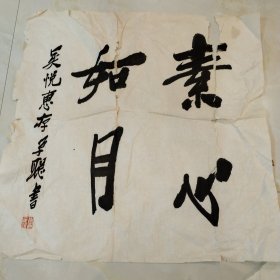 素心
如月
吴悦惠存 军聪书